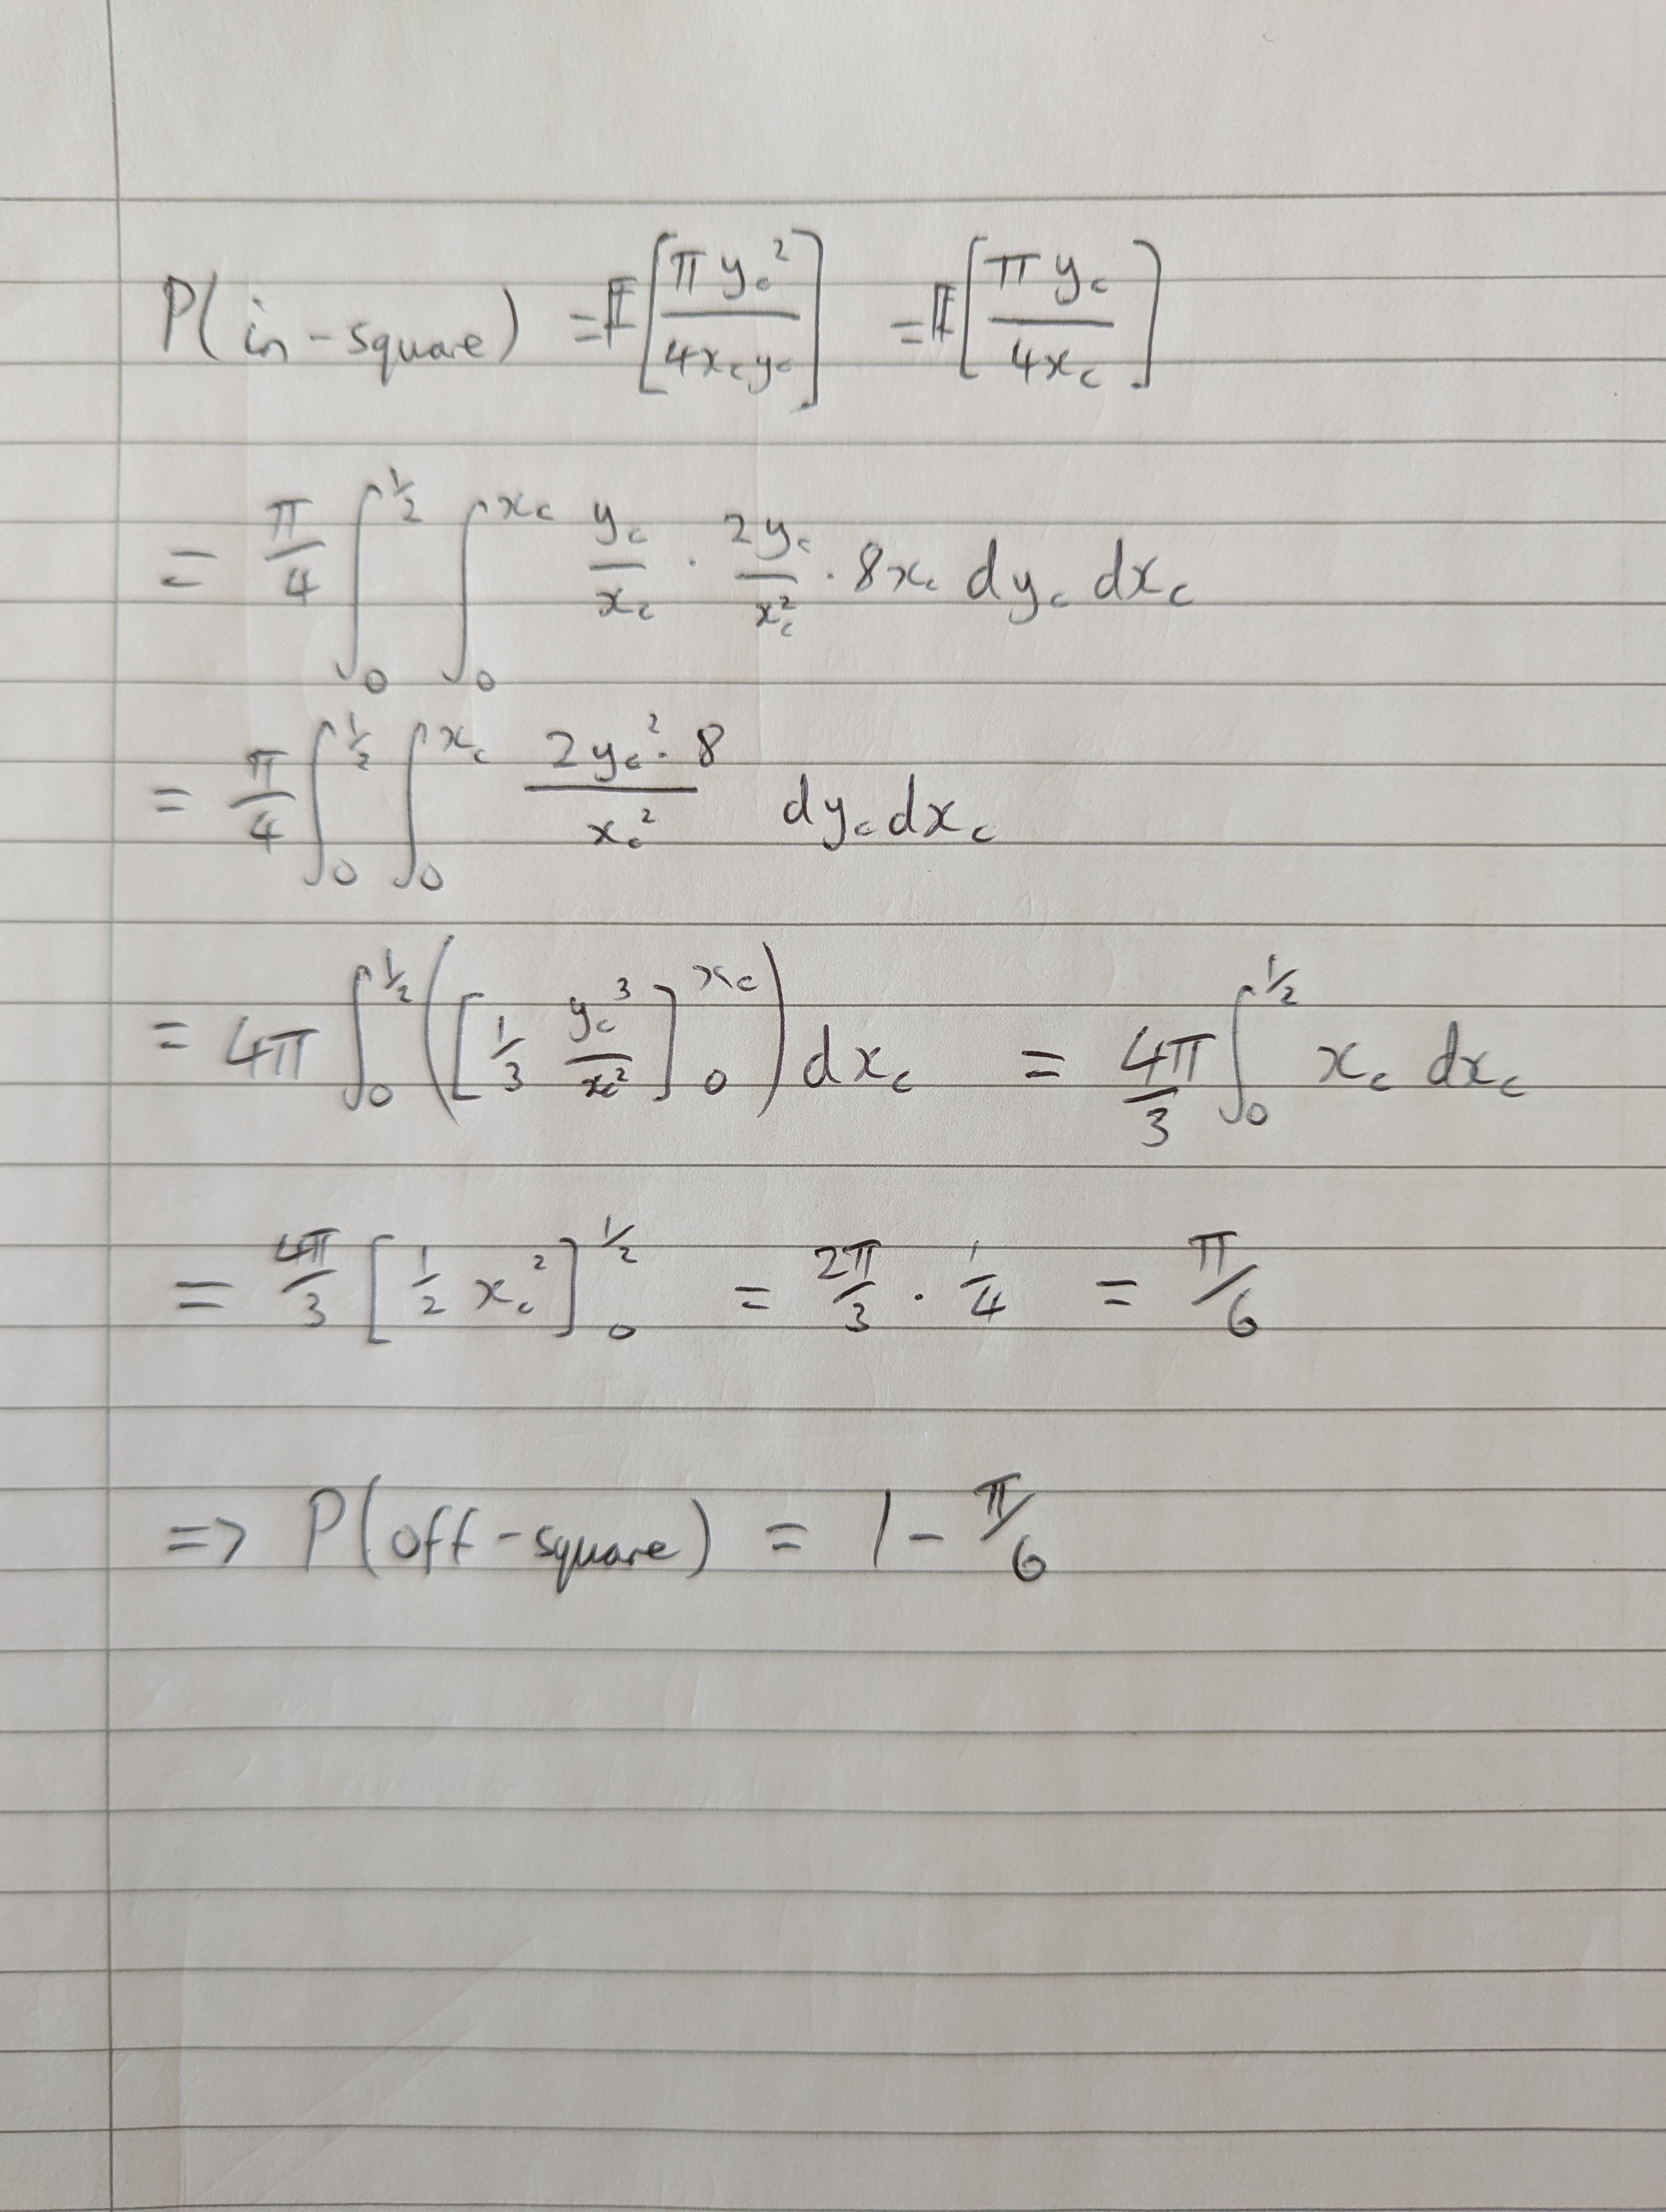 P(in-square) = 𝔼[πy_c²/4x_c y_c] = 𝔼[πy_c/4x_c]
= π/4 ∫₀^{1/2} ∫₀^{x_c} y_c/x_c · 2y_c/x_c² · 8x_c dy_c dx_c
= π/4 ∫₀^{1/2} ∫₀^{x_c} 2y_c² · 8/x_c² dy_c dx_c
= 4π ∫₀^{1/2} ([1/3 y_c³/x_c²]₀^{x_c}) dx_c = 4π/3 ∫₀^{1/2} x_c dx_c
= 4π/3 [1/2 x_c²]₀^{1/2} = 2π/3 · 1/4 = π/6
=> P(off-square) = 1 - π/6